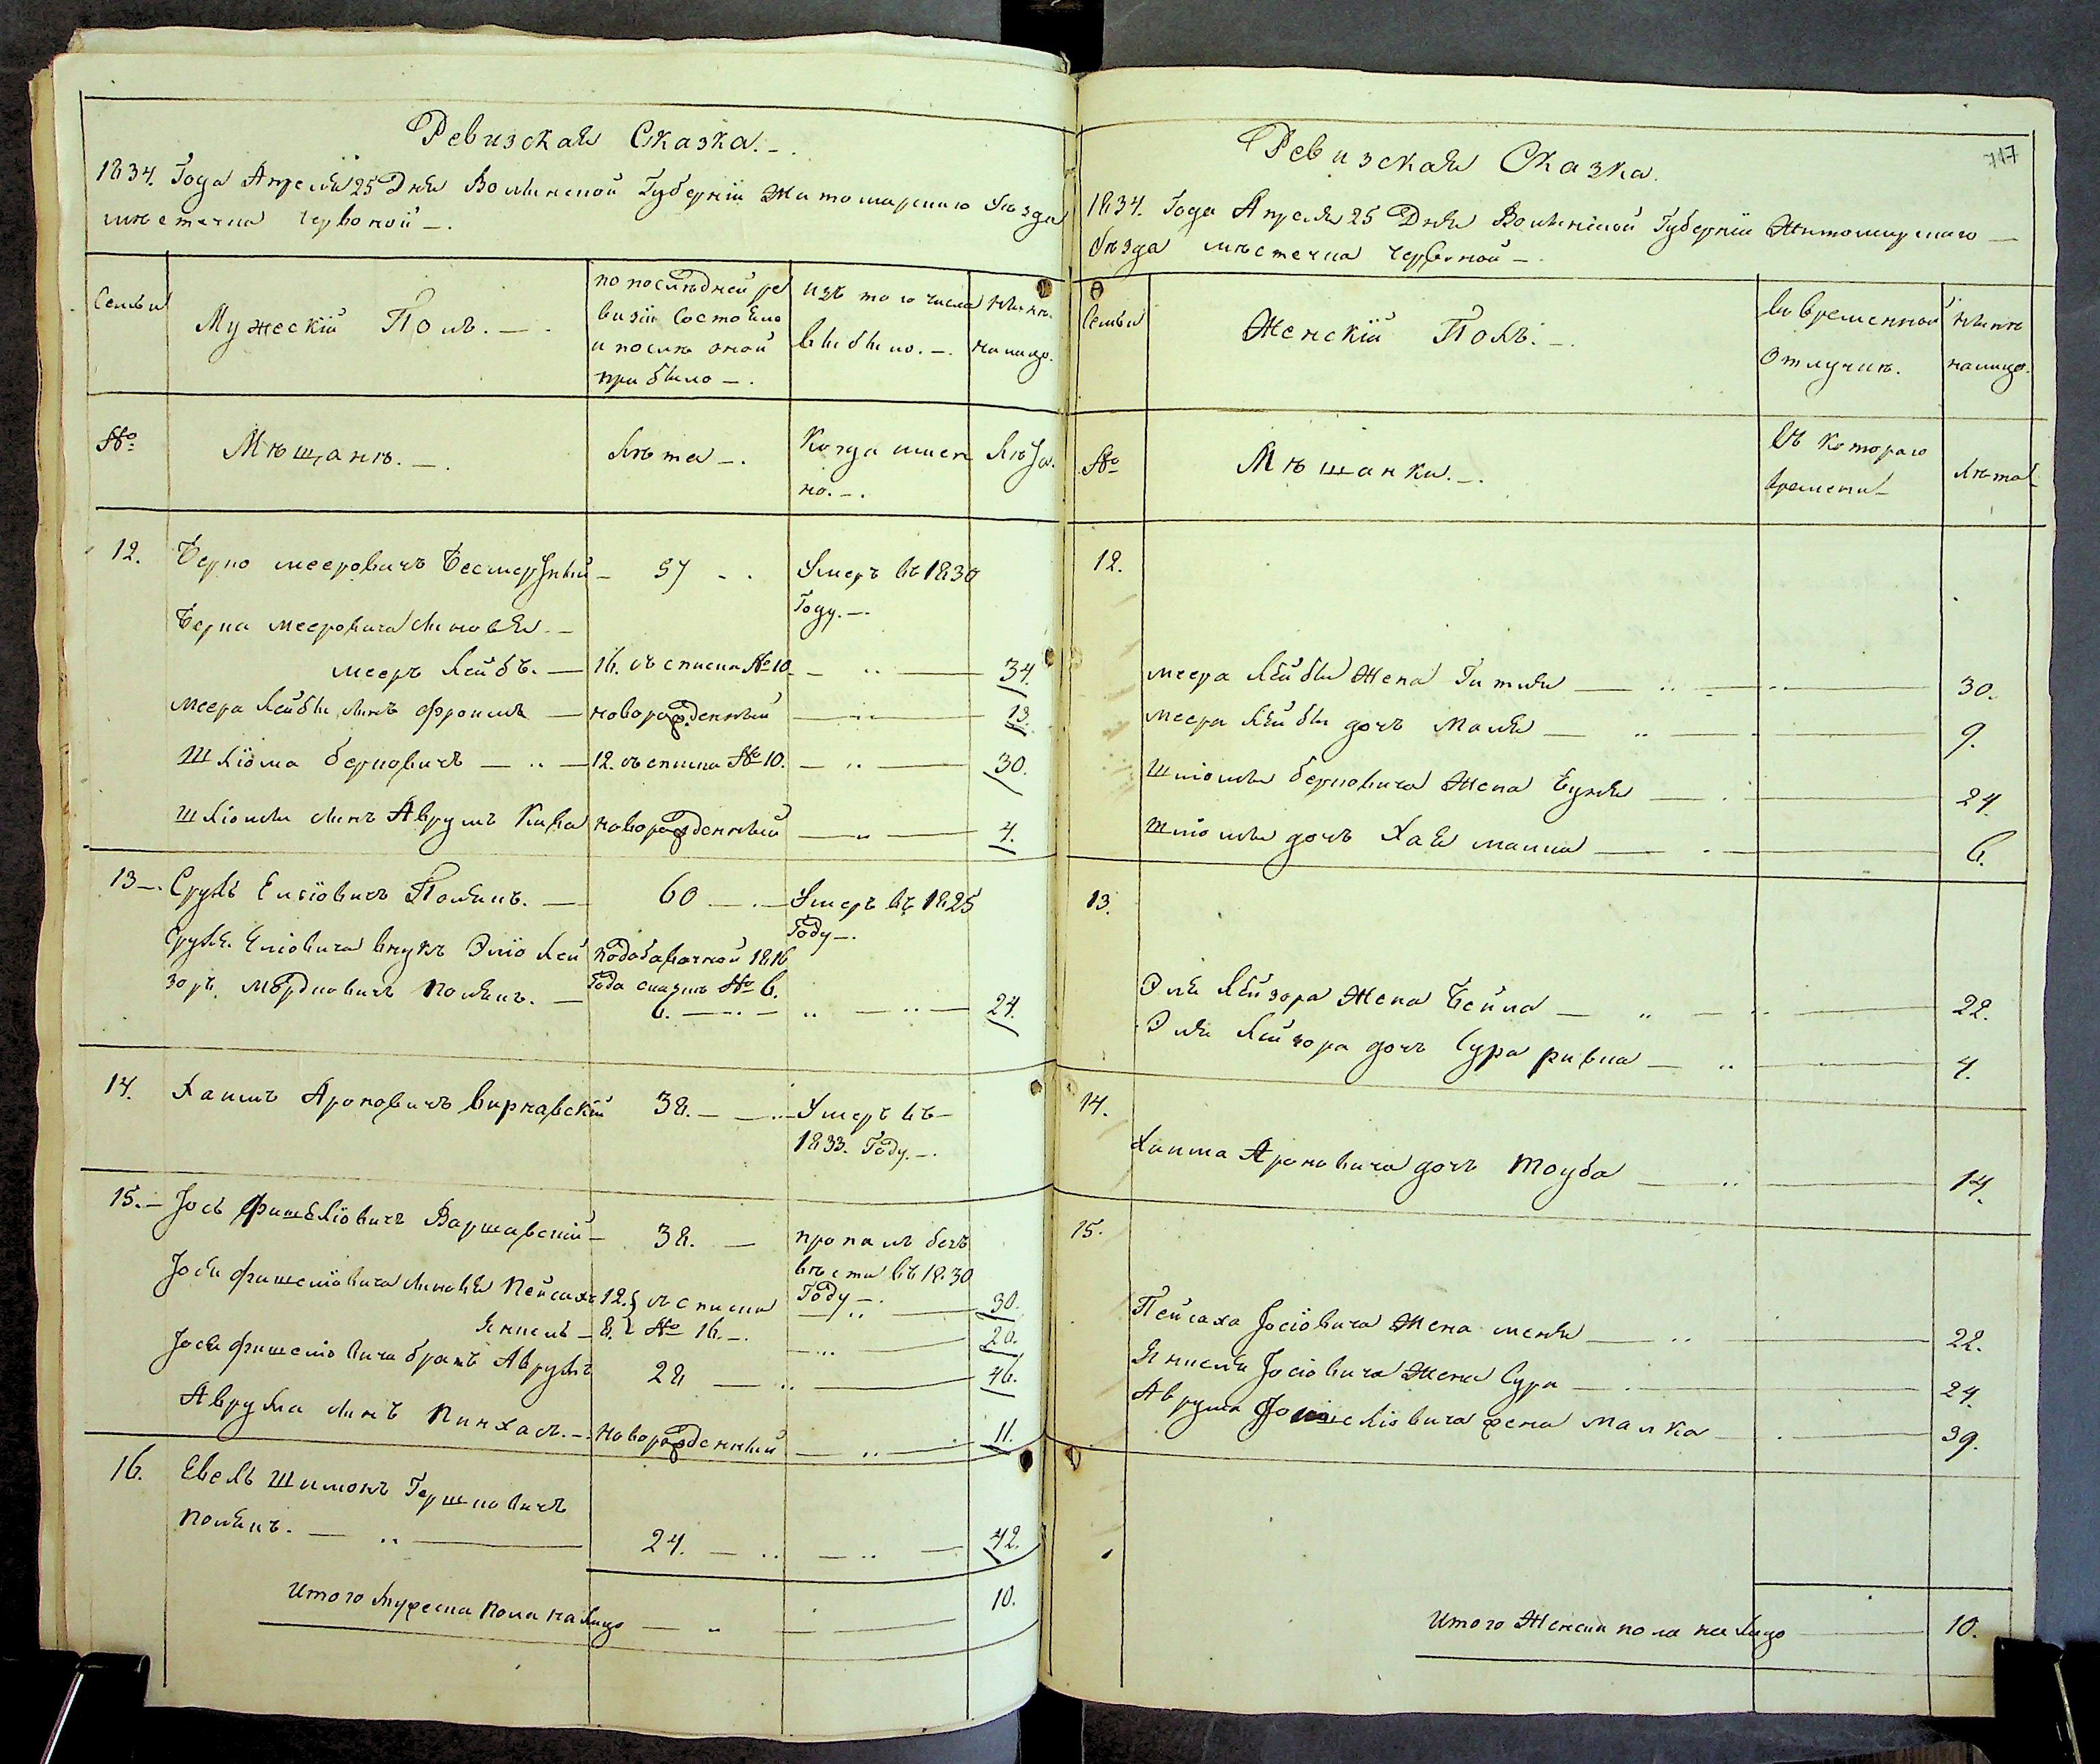 Ревизская Сказка.
1834. Года Апреля 25 Дня Волынской Губернии Житомирского уезда
местечка Червоной
Семьи
Мужеский Полъ.
по последней ре
визии состояло
и после оной
прибыло
изъ того числа
выбыло.
ныне
налицо.
№
Мещане.
Лета
Когда имен
но.
Лета.
12. Берко мееровичъ Бесмертный 57 Умеръ въ 1830
Году.
Берка мееровича сыновья
мееръ Лейбъ. 16. съ списка № 10. 34.
меера Лейбы сынъ Фроимъ новорожденный 13.
Шліома берковичъ 12. съ списка № 10. 30.
шліомы сынъ Аврумъ Кива новорожденный 4.
13. Сруль Еліовичъ Полякъ. 60 Умеръ въ 1825
Году
Сруля Еліовича внукъ Эліо Лей подобавочной 1816
зоръ мордковичъ полякъ. Года сказке № 6.
6. 24.
14. Хаимъ Ароновичъ 38. Умеръ въ
1833. Году.
15. Іось Фишеліовичъ Варшавскій 38. пропалъ безъ
вести въ 1830
Году
Іося Фишеліовича сыновья Пейсахъ 12. съ списка 30.
Янкель 8. № 16. 20.
Іося фишеліовича братъ Аврумъ 28 46.
Аврума сынъ Пинхасъ. новорожденный 11.
16. Евель Шимонъ Гершковичъ
полякъ. 24. 42.
Итого мужеска пола налицо 10.
717
Ревизская Сказка.
1834. Года Апреля 25 Дня Волынской Губернии Житомирского
уезда местечка Червоной
Семьи
Женский Полъ.
Во временной
отлучке.
ныне
налицо.
№
Мещанки.
Съ которого
времени
лета
12.
меера Лейбы Жена Гитля 30.
меера Лейбы дочь Маля 9.
Шліомы берковича Жена Буня 24.
Шліомы дочь Хая малка 6.
13.
Эля Лейзора Жена Бейла 22.
Эля Лейзора дочь Сура ривка 4.
14.
Хаима Ароновича дочь Тоуба 14.
15.
Пейсаха Іосіовича Жена меня 22.
Янкеля Іосіовича Жена Сура 24.
Аврума жена малка 39.
Итого Женска пола налицо 10.